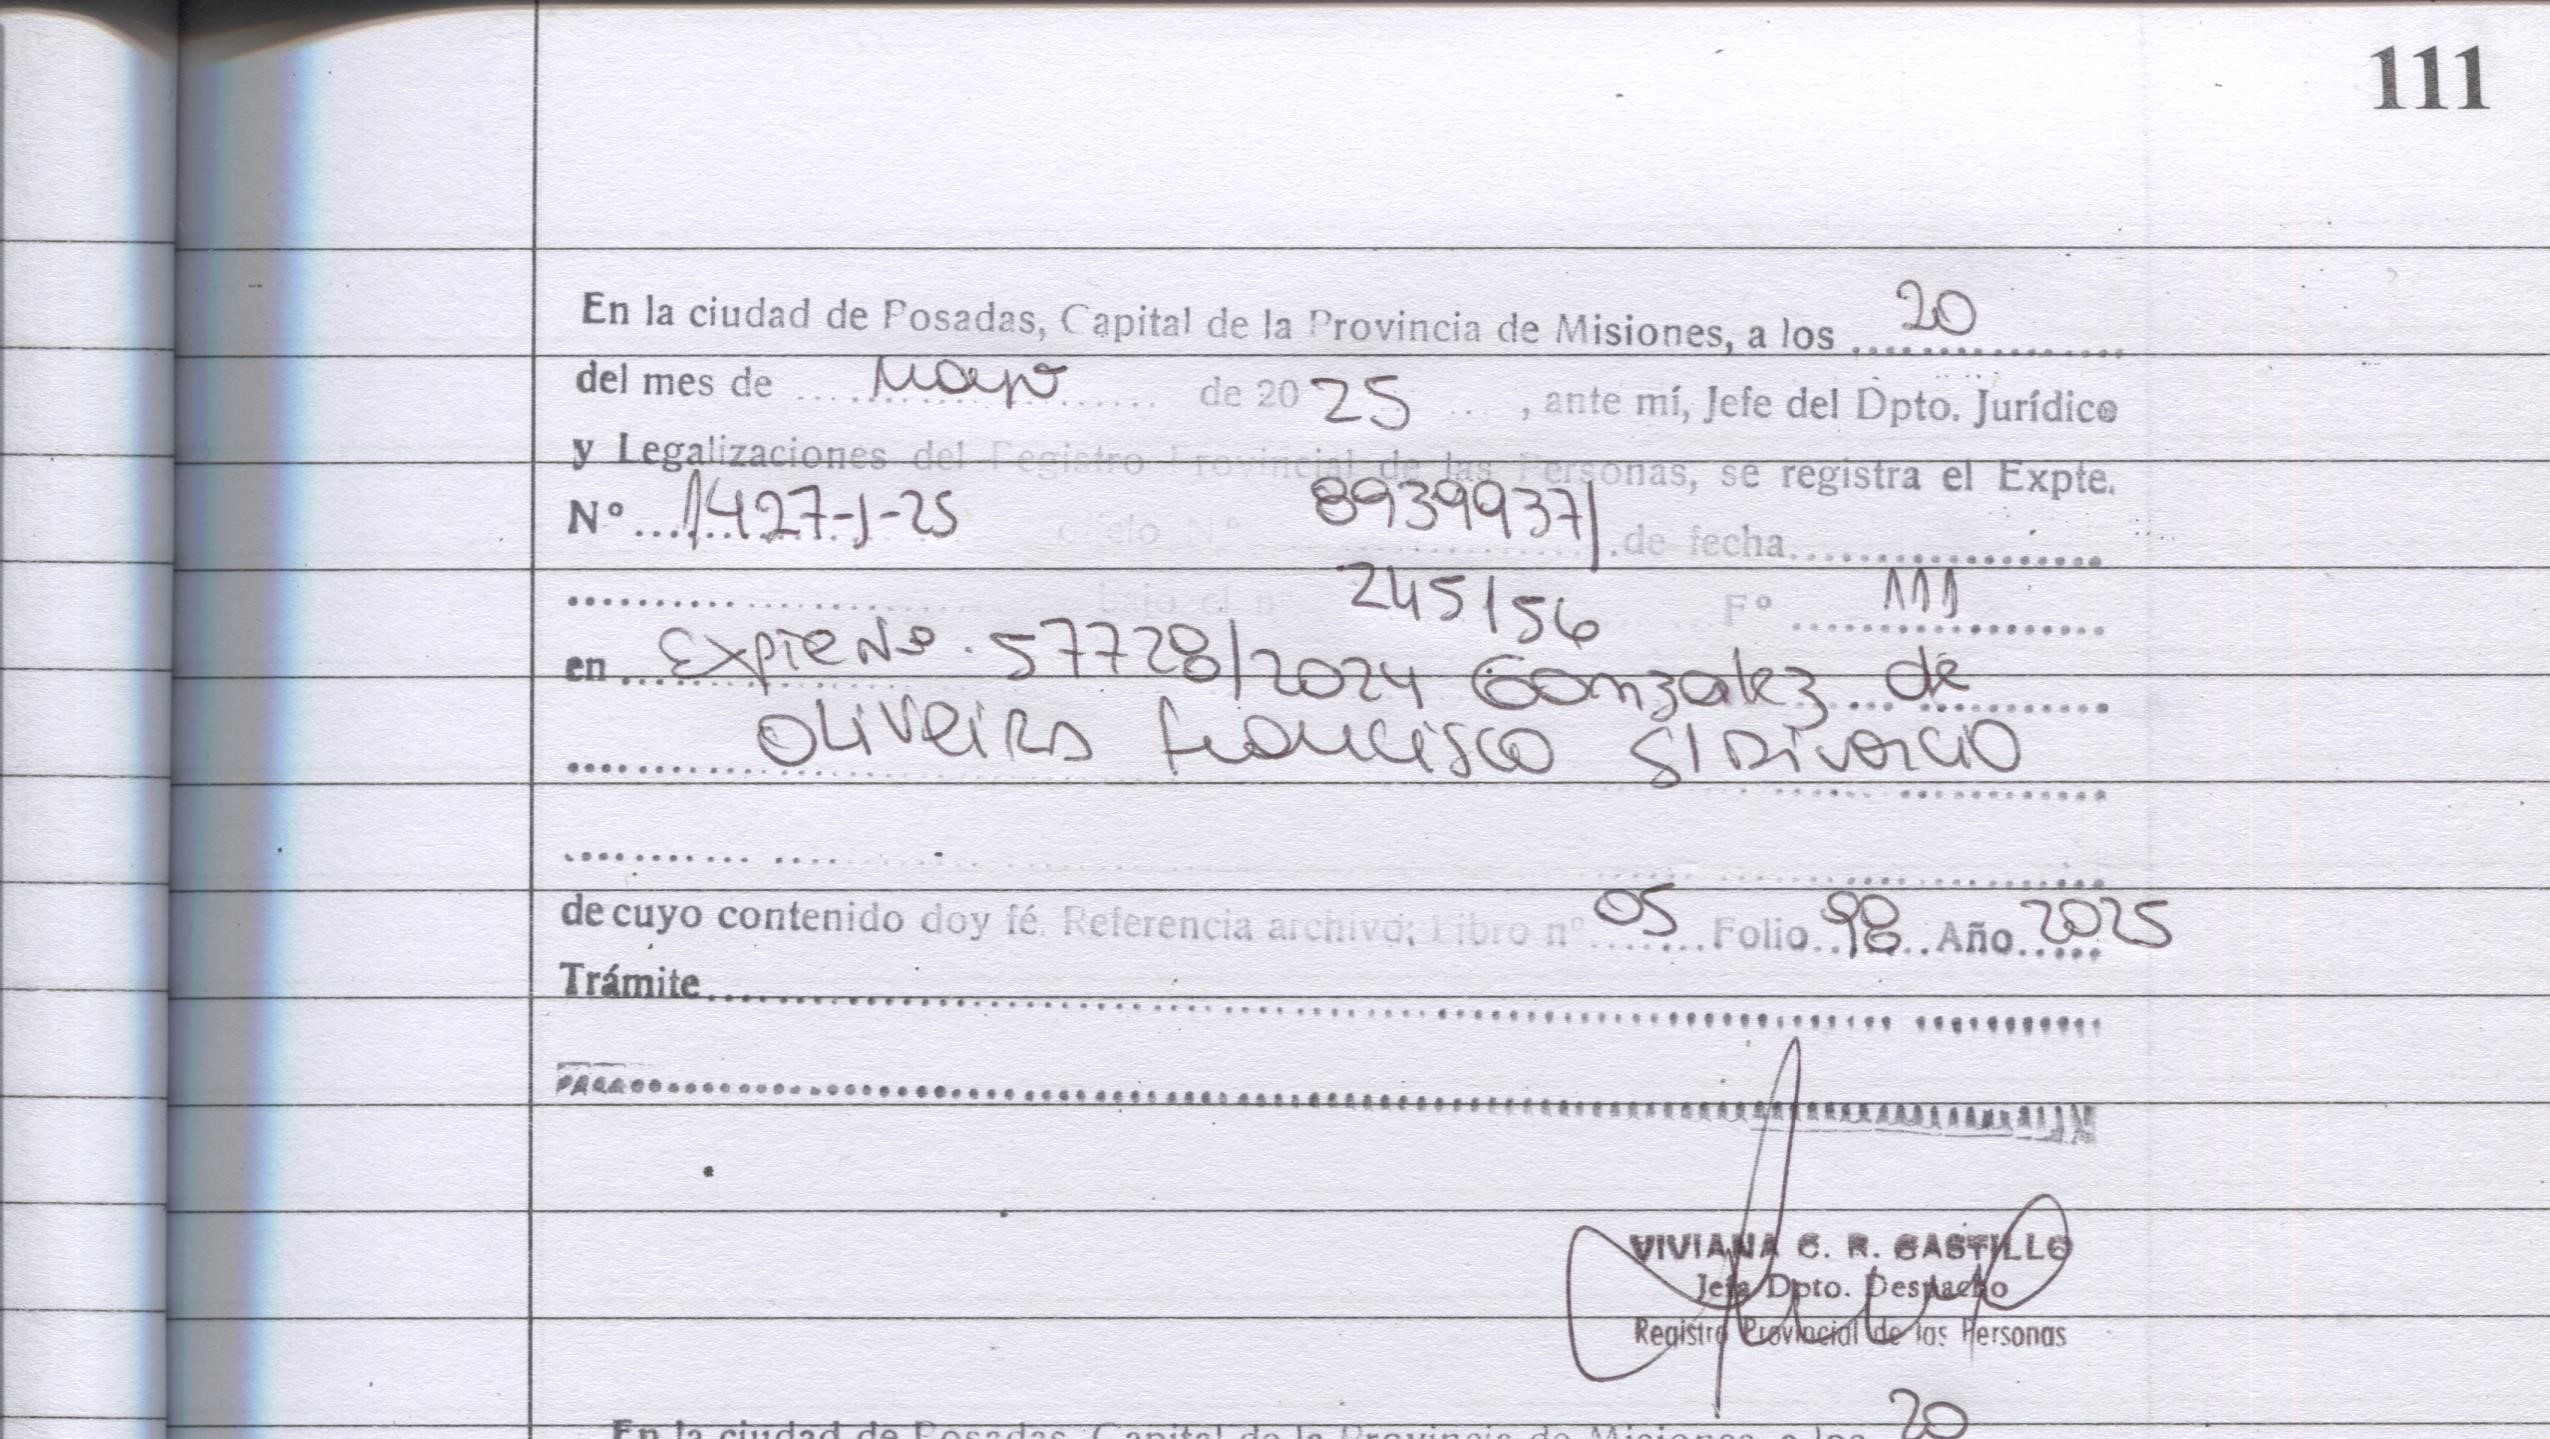 111
En la ciudad de Posadas, Capital de la Provincia de Misiones, a los 20
del mes de Mayo de 2025, ante mí, Jefe del Dpto. Jurídico
y Legalizaciones del Registro Provincial de las Personas, se registra el Expte.
Nº 1427-J-25 oficio Nº 8939937/ de fecha
bajo el nº 245156 Fº 111
en Expte Nº. 57728/2024 Gonzalez de
Oliveira Francisco S/Divorcio
de cuyo contenido doy fé. Referencia archivo: Libro nº 05 Folio 98 Año 2025
Trámite
VIVIANA C. R. CASTILLO
Jefa Dpto. Despacho
Registro Provincial de las Personas
En la ciudad de Posadas, Capital de la Provincia de Misiones, a los 20